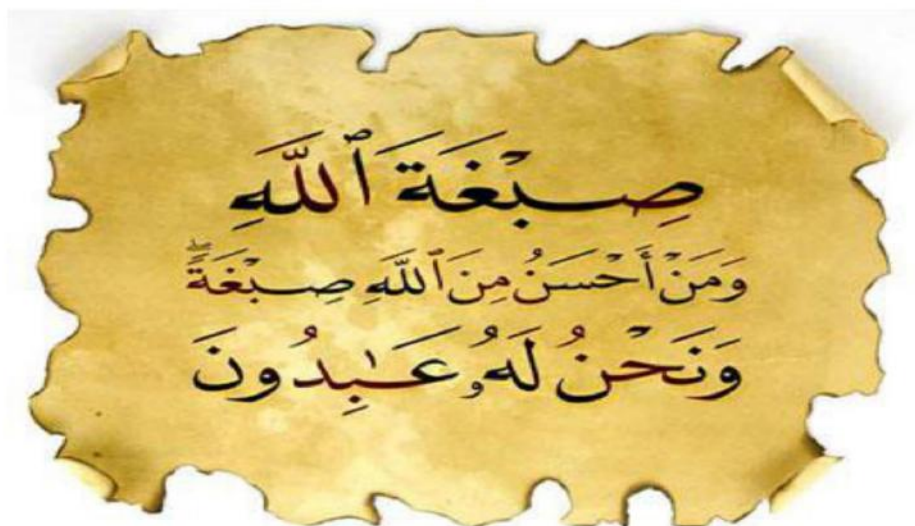 صِبْغَةَ ٱللَّهِ
وَمَنْ أَحْسَنُ مِنَ ٱللَّهِ صِبْغَةً ۖ
وَنَحْنُ لَهُۥ عَـٰبِدُونَ